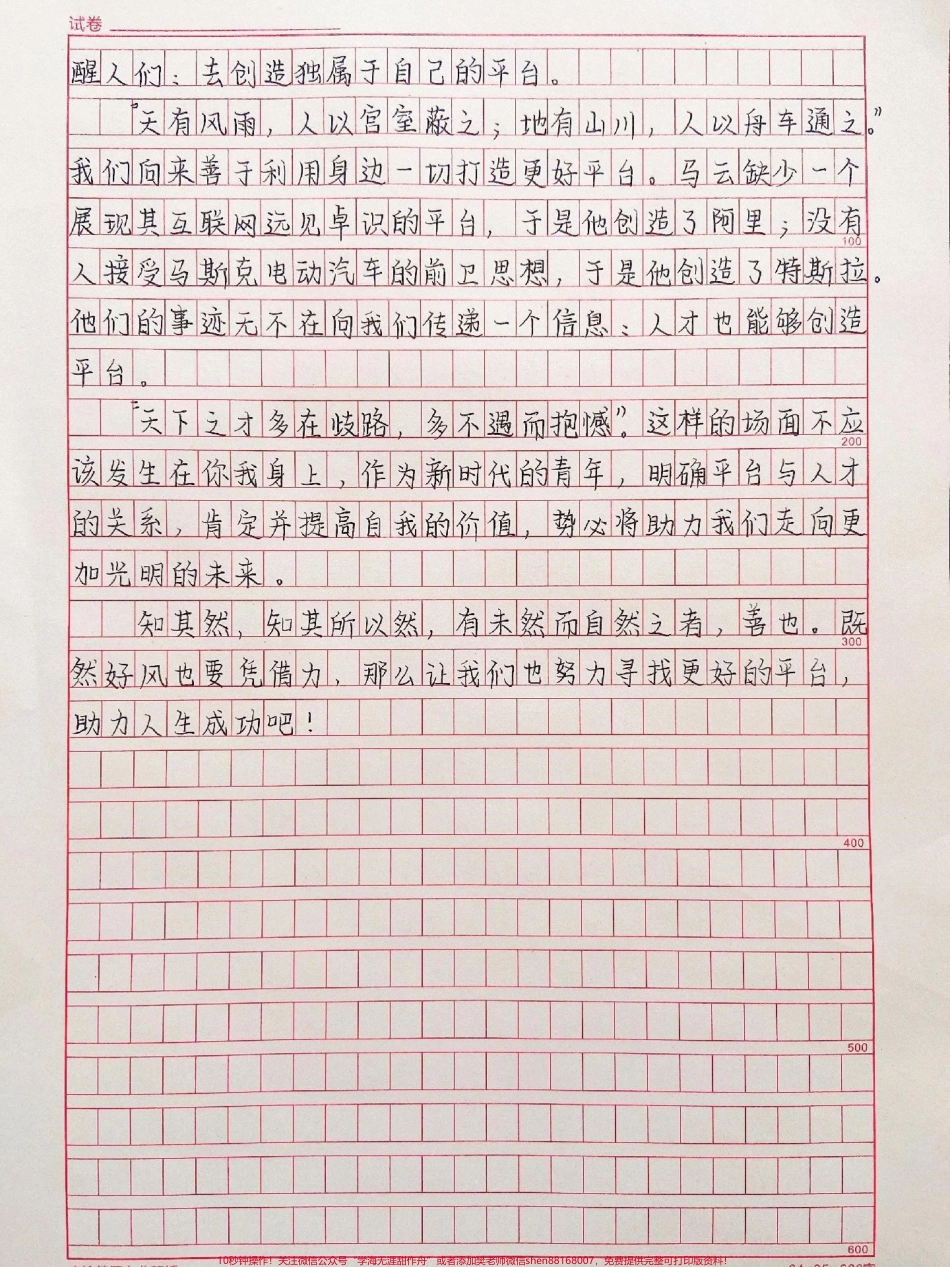 试卷
醒人们：去创造独属于自己的平台。
“天有风雨，人以宫室蔽之；地有山川，人以舟车通之。”
我们向来善于利用身边一切打造更好平台。马云缺少一个
展现其互联网远见卓识的平台，于是他创造了阿里；没有
100
人接受马斯克电动汽车的前卫思想，于是他创造了特斯拉。
他们的事迹无不在向我们传递一个信息：人才也能够创造
平台。
“天下之才多在歧路，多不遇而抱憾”。这样的场面不应
200
该发生在你我身上，作为新时代的青年，明确平台与人才
的关系，肯定并提高自我的价值，势必将助力我们走向更
加光明的未来。
知其然，知其所以然，有未然而自然之者，善也。既
300
然好风也要凭借力，那么让我们也努力寻找更好的平台，
助力人生成功吧！
400
500
600
10秒钟操作！关注微信公众号“学海无涯甜作舟”或者添加笑老师微信shen88168007，免费提供完整可打印版资料！